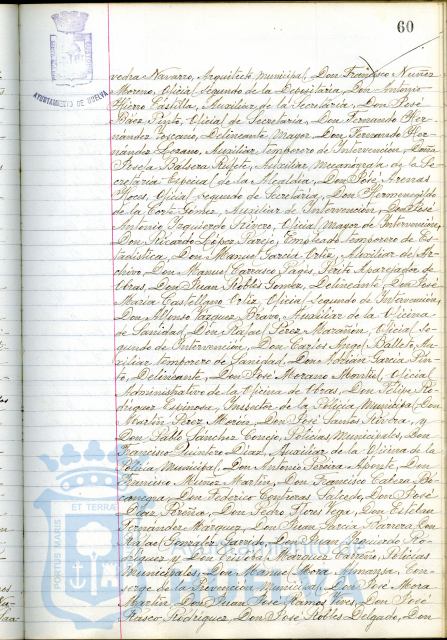 60
AYUNTAMIENTO DE HUELVA
vedra Navarro, Arquitecto municipal, Don Francisco Nuñez
Moreno, Oficial Segundo de la Depositaría, Don Antonio
Hierro Castilla, Auxiliar de la Secretaría, Don José
Báez Pinto, Oficial de Secretaría, Don Fernando Her-
nández Toscano, Delineante Mayor, Don Fernando Her-
nández Lozano, Auxiliar temporero de Intervención, Doña
Fisela Balsera Rufete, Auxiliar mecanógrafa de la Se-
cretaría Especial de la Alcaldía, Don José Arenas
Roces, Oficial segundo de Secretaría, Don Hermenegildo
de la Corte Gomez, Auxiliar de Intervención, Don José
Antonio Izquierdo Rivero, Oficial Mayor de Intervención,
Don Ricardo López Parejo, Empleado temporero de Es-
tadística, Don Manuel García Ortiz, Auxiliar de Ar-
chivo, Don Manuel Carrasco Pagés, Perito Aparejador de
Obras, Don Juan Robles Gomez, Delineante, Don José
María Castellano Ortiz, Oficial Segundo de Intervención,
Don Alfonso Vázquez Bravo, Auxiliar de la Oficina
de Sanidad, Don Rafael Pérez Marañón, Oficial Se-
gundo de Intervención, Don Carlos Angel Balleto, Au-
xiliar temporero de Sanidad, Don Adrián García Pin-
to, Delineante, Don José Morano Montiel, Oficial
Administrativo de la Oficina de Obras, Don Felix Ro-
dríguez Espinosa, Inspector de la Policía Municipal, Don
Martín Pérez Morón, Don José Santos Rivera, y
Don Pablo Sánchez Conejo, Policías Municipales, Don
Francisco Quintero Díaz, Auxiliar de la Oficina de la
Policía Municipal, Don Antonio Pereira Aponte, Don
Francisco Muñoz Martín, Don Francisco Catera Bo-
canegra, Don Federico Contreras Salcedo, Don José
Díaz Pereño, Don Pedro Flores Vega, Don Esteban
Fernández Marquez, Don Juan García Barrera, Don
Rafael Gonzalez Garrido, Don Juan Izquierdo Ro-
dríguez y Don Vicente Márquez Carreño, Policías
Municipales, Don Manuel Mora Almansa, Con-
serge de la Prevención Municipal, Don José Mora
Martín, Don Juan José Ramos Vives, Don José
Rasco Rodríguez, Don José Robles Delgado, Don
PORTUS MARIS ET TERRAE